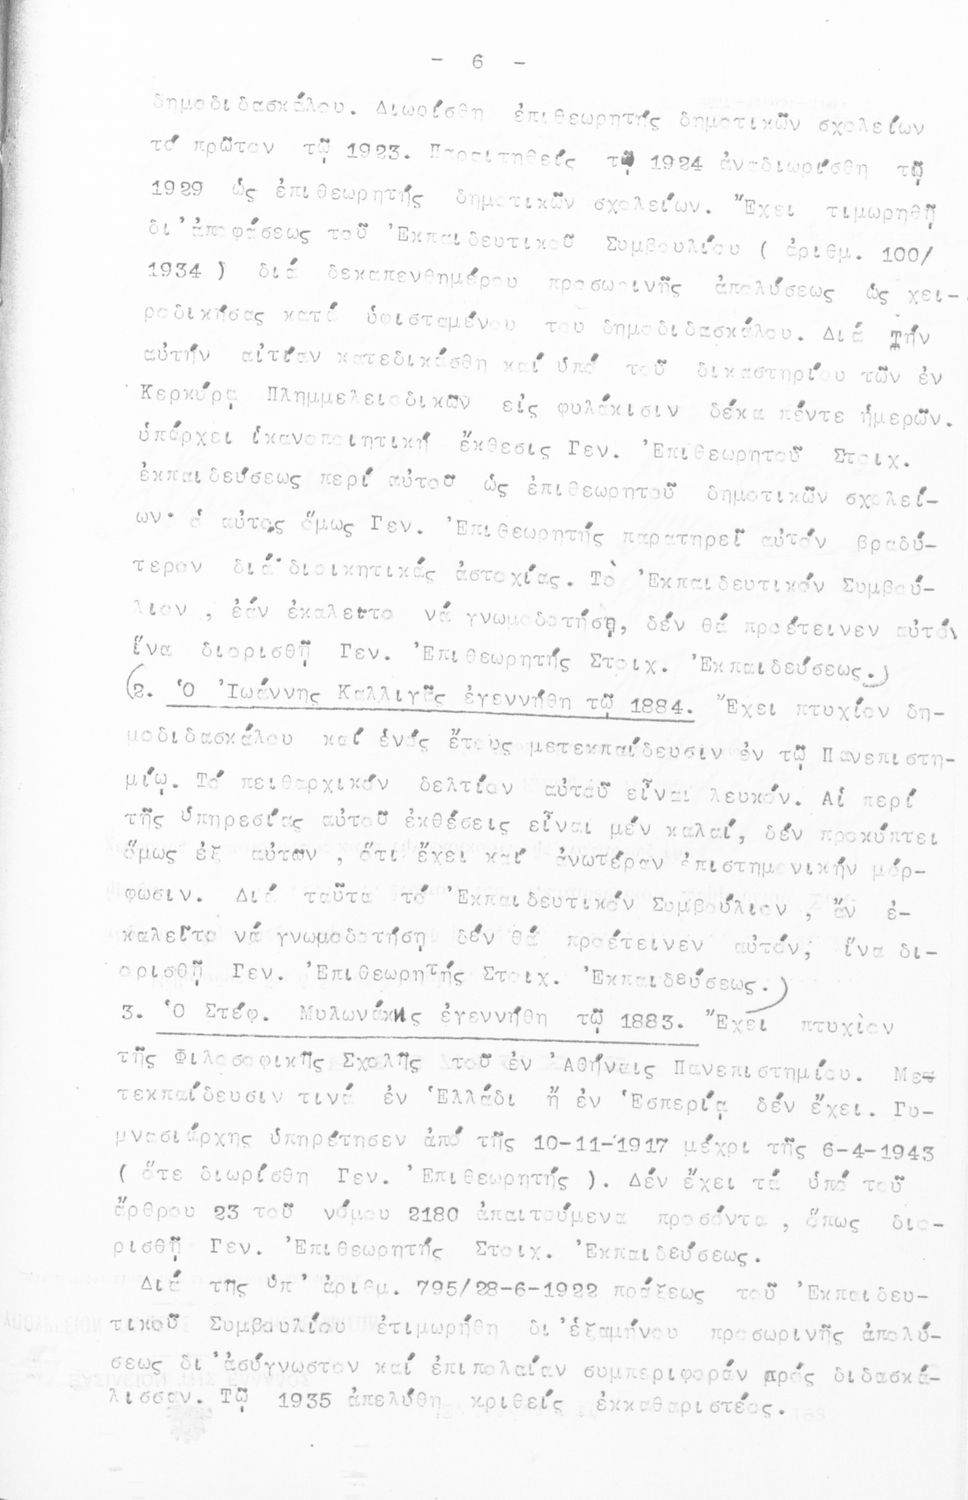 - 6 -
δημοδιδασκάλου. Διωρίσθη ἐπιθεωρητής δημοτικῶν σχολείων
τό πρῶτον τῷ 1923. Παραιτηθείς τῷ 1924 ἀναδιωρίσθη τῷ
1929 ὡς ἐπιθεωρητής δημοτικῶν σχολείων. Ἔχει τιμωρηθῆ
δι' ἀποφάσεως τοῦ Ἐκπαιδευτικοῦ Συμβουλίου ( ἀριθμ. 100/
1934 ) διά δεκαπενθημέρου προσωρινῆς ἀπολύσεως ὡς χει-
ροδικήσας κατά ὑφισταμένου του δημοδιδασκάλου. Διά τήν
αὐτήν αἰτίαν κατεδικάσθη καί ὑπό τοῦ δικαστηρίου τῶν ἐν
Κερκύρᾳ Πλημμελειοδικῶν εἰς φυλάκισιν δέκα πέντε ἡμερῶν.
ὑπάρχει ἱκανοποιητική ἔκθεσις Γεν. Ἐπιθεωρητοῦ Στοιχ.
ἐκπαιδεύσεως περί αὐτοῦ ὡς ἐπιθεωρητοῦ δημοτικῶν σχολεί-
ων· ὁ αὐτος ὅμως Γεν. Ἐπιθεωρητής παρατηρεῖ αὐτόν βραδύ-
τερον διά διοικητικάς ἀστοχίας. Τὸ Ἐκπαιδευτικόν Συμβού-
λιον , ἐάν ἐκαλεῖτο νά γνωμοδοτήσῃ, δέν θά προέτεινεν αὐτόν
ἵνα διορισθῇ Γεν. Ἐπιθεωρητής Στοιχ. Ἐκπαιδεύσεως.)
(2. Ὁ Ἰωάννης Καλλιγᾶς ἐγεννήθη τῷ 1884. Ἔχει πτυχίον δη-
μοδιδασκάλου καί ἑνός ἔτους μετεκπαίδευσιν ἐν τῷ Πανεπιστη-
μίῳ. Τό πειθαρχικόν δελτίον αὐτοῦ εἶναι λευκόν. Αἱ περί
τῆς ὑπηρεσίας αὐτοῦ ἐκθέσεις εἶναι μέν καλαί, δέν προκύπτει
ὅμως ἐξ αὐτῶν , ὅτι ἔχει καί ἀνωτέραν ἐπιστημονικήν μόρ-
φωσιν. Διά ταῦτα τό Ἐκπαιδευτικόν Συμβούλιον , ἄν ἐ-
καλεῖτο νά γνωμοδοτήσῃ δέν θά προέτεινεν αὐτόν, ἵνα δι-
ορισθῇ Γεν. Ἐπιθεωρητής Στοιχ. Ἐκπαιδεύσεως.)
3. Ὁ Στέφ. Μυλωνάκης ἐγεννήθη τῷ 1883. Ἔχει πτυχὶον
τῆς Φιλοσοφικῆς Σχολῆς τοῦ ἐν Ἀθήναις Πανεπιστημίου. Με-
τεκπαίδευσιν τινά ἐν Ἑλλάδι ἤ ἐν Ἑσπερίᾳ δέν ἔχει. Γυ-
μνασιάρχης ὑπηρέτησεν ἀπό τῆς 10-11-1917 μέχρι τῆς 6-4-1943
( ὅτε διωρίσθη Γεν. Ἐπιθεωρητής ). Δέν ἔχει τά ὑπό τοῦ
ἄρθρου 23 τοῦ νόμου 2180 ἀπαιτούμενα προσόντα , ὅπως διο-
ρισθῇ Γεν. Ἐπιθεωρητής Στοιχ. Ἐκπαιδεύσεως.
Διά της ὑπ' ἀριθμ. 795/28-6-1922 πράξεως τοῦ Ἐκπαιδευ-
τικοῦ Συμβουλίου ἐτιμωρήθη δι' ἑξαμήνου προσωρινῆς ἀπολύ-
σεως δι' ἀσύγνωστον καί ἐπιπολαίαν συμπεριφοράν πρός διδασκά-
λισσαν. Τῷ 1935 ἀπελύθη κριθείς ἐκκαθαριστέος.